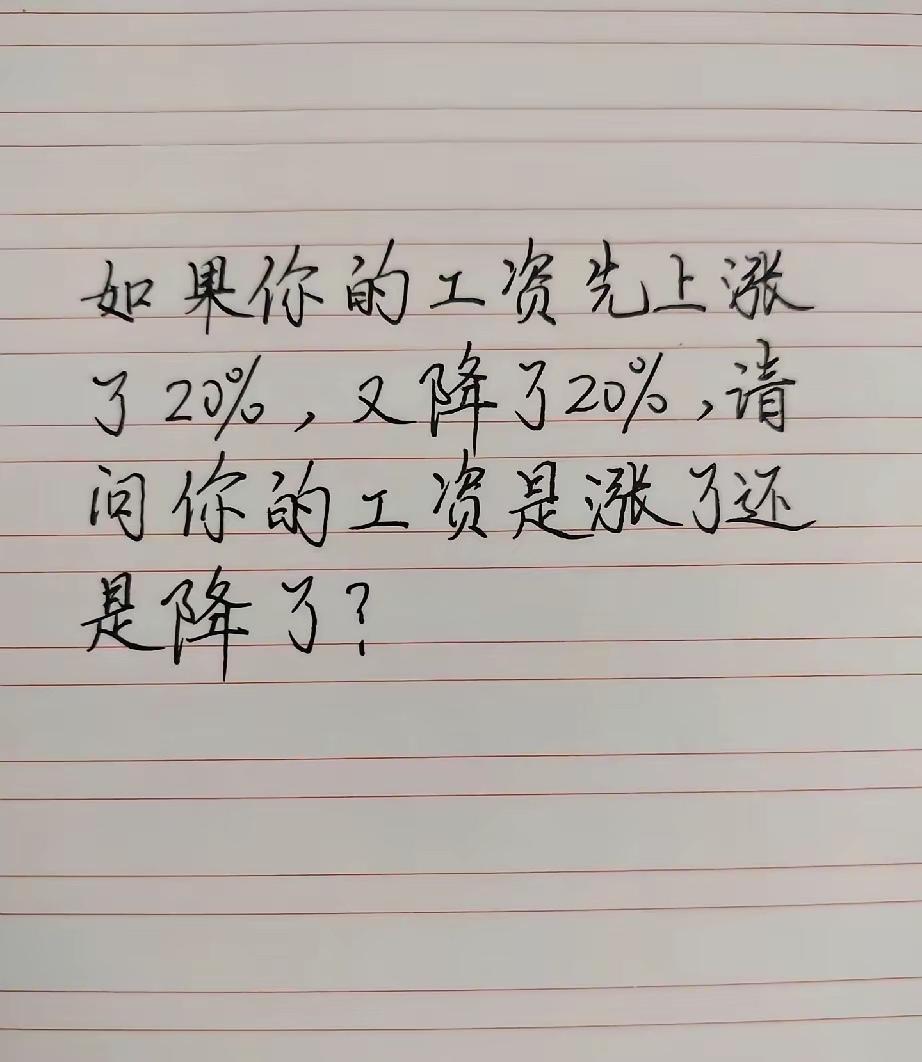 如果你的工资先上涨
了20%,又降了20%,请
问你的工资是涨了还
是降了?